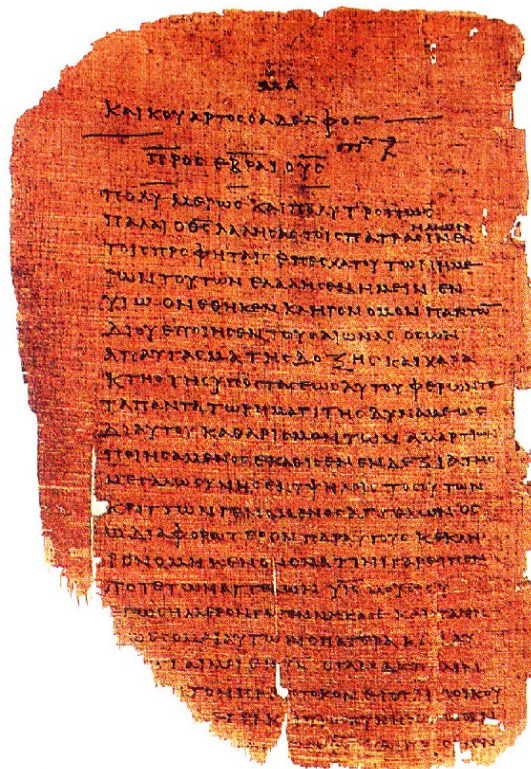 ΜΑ
ΚΑΙ ΚΟΥΑΡΤΟϹ Ο ΑΔΕΛΦΟϹ
ΠΡΟϹ ΕΒΡΑΙΟΥϹ
ΠΟΛΥΜΕΡΩϹ ΚΑΙ ΠΟΛΥΤΡΟΠΩϹ
ΠΑΛΑΙ Ο ΘϹ ΛΑΛΗϹΑϹ ΤΟΙϹ ΠΑΤΡΑϹΙΝ ΗΜΩΝ ΕΝ
ΤΟΙϹ ΠΡΟΦΗΤΑΙϹ ΕΠ ΕϹΧΑΤΟΥ ΤΩΝ ΗΜΕ
ΡΩΝ ΤΟΥΤΩΝ ΕΛΑΛΗϹΕΝ ΗΜΕΙΝ ΕΝ
ΥΙΩ ΟΝ ΕΘΗΚΕΝ ΚΛΗΡΟΝΟΜΟΝ ΠΑΝΤΩ̅
ΔΙ ΟΥ ΕΠΟΙΗϹΕΝ ΤΟΥϹ ΑΙΩΝΑϹ ΟϹ ΩΝ
ΑΠΑΥΓΑϹΜΑ ΤΗϹ ΔΟΞΗϹ ΚΑΙ ΧΑΡΑ
ΚΤΗΡ ΤΗϹ ΥΠΟϹΤΑϹΕΩϹ ΑΥΤΟΥ ΦΕΡΩΝ ΤΕ
ΤΑ ΠΑΝΤΑ ΤΩ ΡΗΜΑΤΙ ΤΗϹ ΔΥΝΑΜΕΩϹ
ΔΙ ΑΥΤΟΥ ΚΑΘΑΡΙϹΜΟΝ ΤΩΝ ΑΜΑΡΤΙΩΝ
ΠΟΙΗϹΑΜΕΝΟϹ ΕΚΑΘΙϹΕΝ ΕΝ ΔΕΞΙΑ ΤΗϹ
ΜΕΓΑΛΩϹΥΝΗϹ ΕΝ ΥΨΗΛΟΙϹ ΤΟϹΟΥΤΩ
ΚΡΙΤΤΩΝ ΓΕΝΟΜΕΝΟϹ ΑΓΓΕΛΩΝ ΟϹ
Ω ΔΙΑΦΟΡΩΤΕΡΟΝ ΠΑΡ ΑΥΤΟΥϹ ΚΕΚΛΗ
ΡΟΝΟΜΗΚΕΝ ΟΝΟΜΑ ΤΙΝΙ ΓΑΡ ΕΙΠΕΝ
ΠΟΤΕ ΤΩΝ ΑΓΓΕΛΩΝ ΥϹ ΜΟΥ ΕΙ ϹΥ
ϹΗΜΕΡΟΝ ΓΕΓΕΝΝΗΚΑ ϹΕ ΚΑΙ ΠΑΛΙΝ
ΕϹΟΜΑΙ ΑΥΤΩ ΕΙϹ ΠΑΤΕΡΑ ΚΑΙ ΑΥ
ΕϹΤΑΙ ΜΟΙ ΕΙϹ ΥΝ ΟΤΑΝ ΔΕ ΠΑΛΙΝ
ΤΟΝ ΠΡΩΤΟΤΟΚΟΝ ΕΙϹ ΤΗΝ ΟΙΚΟΥ